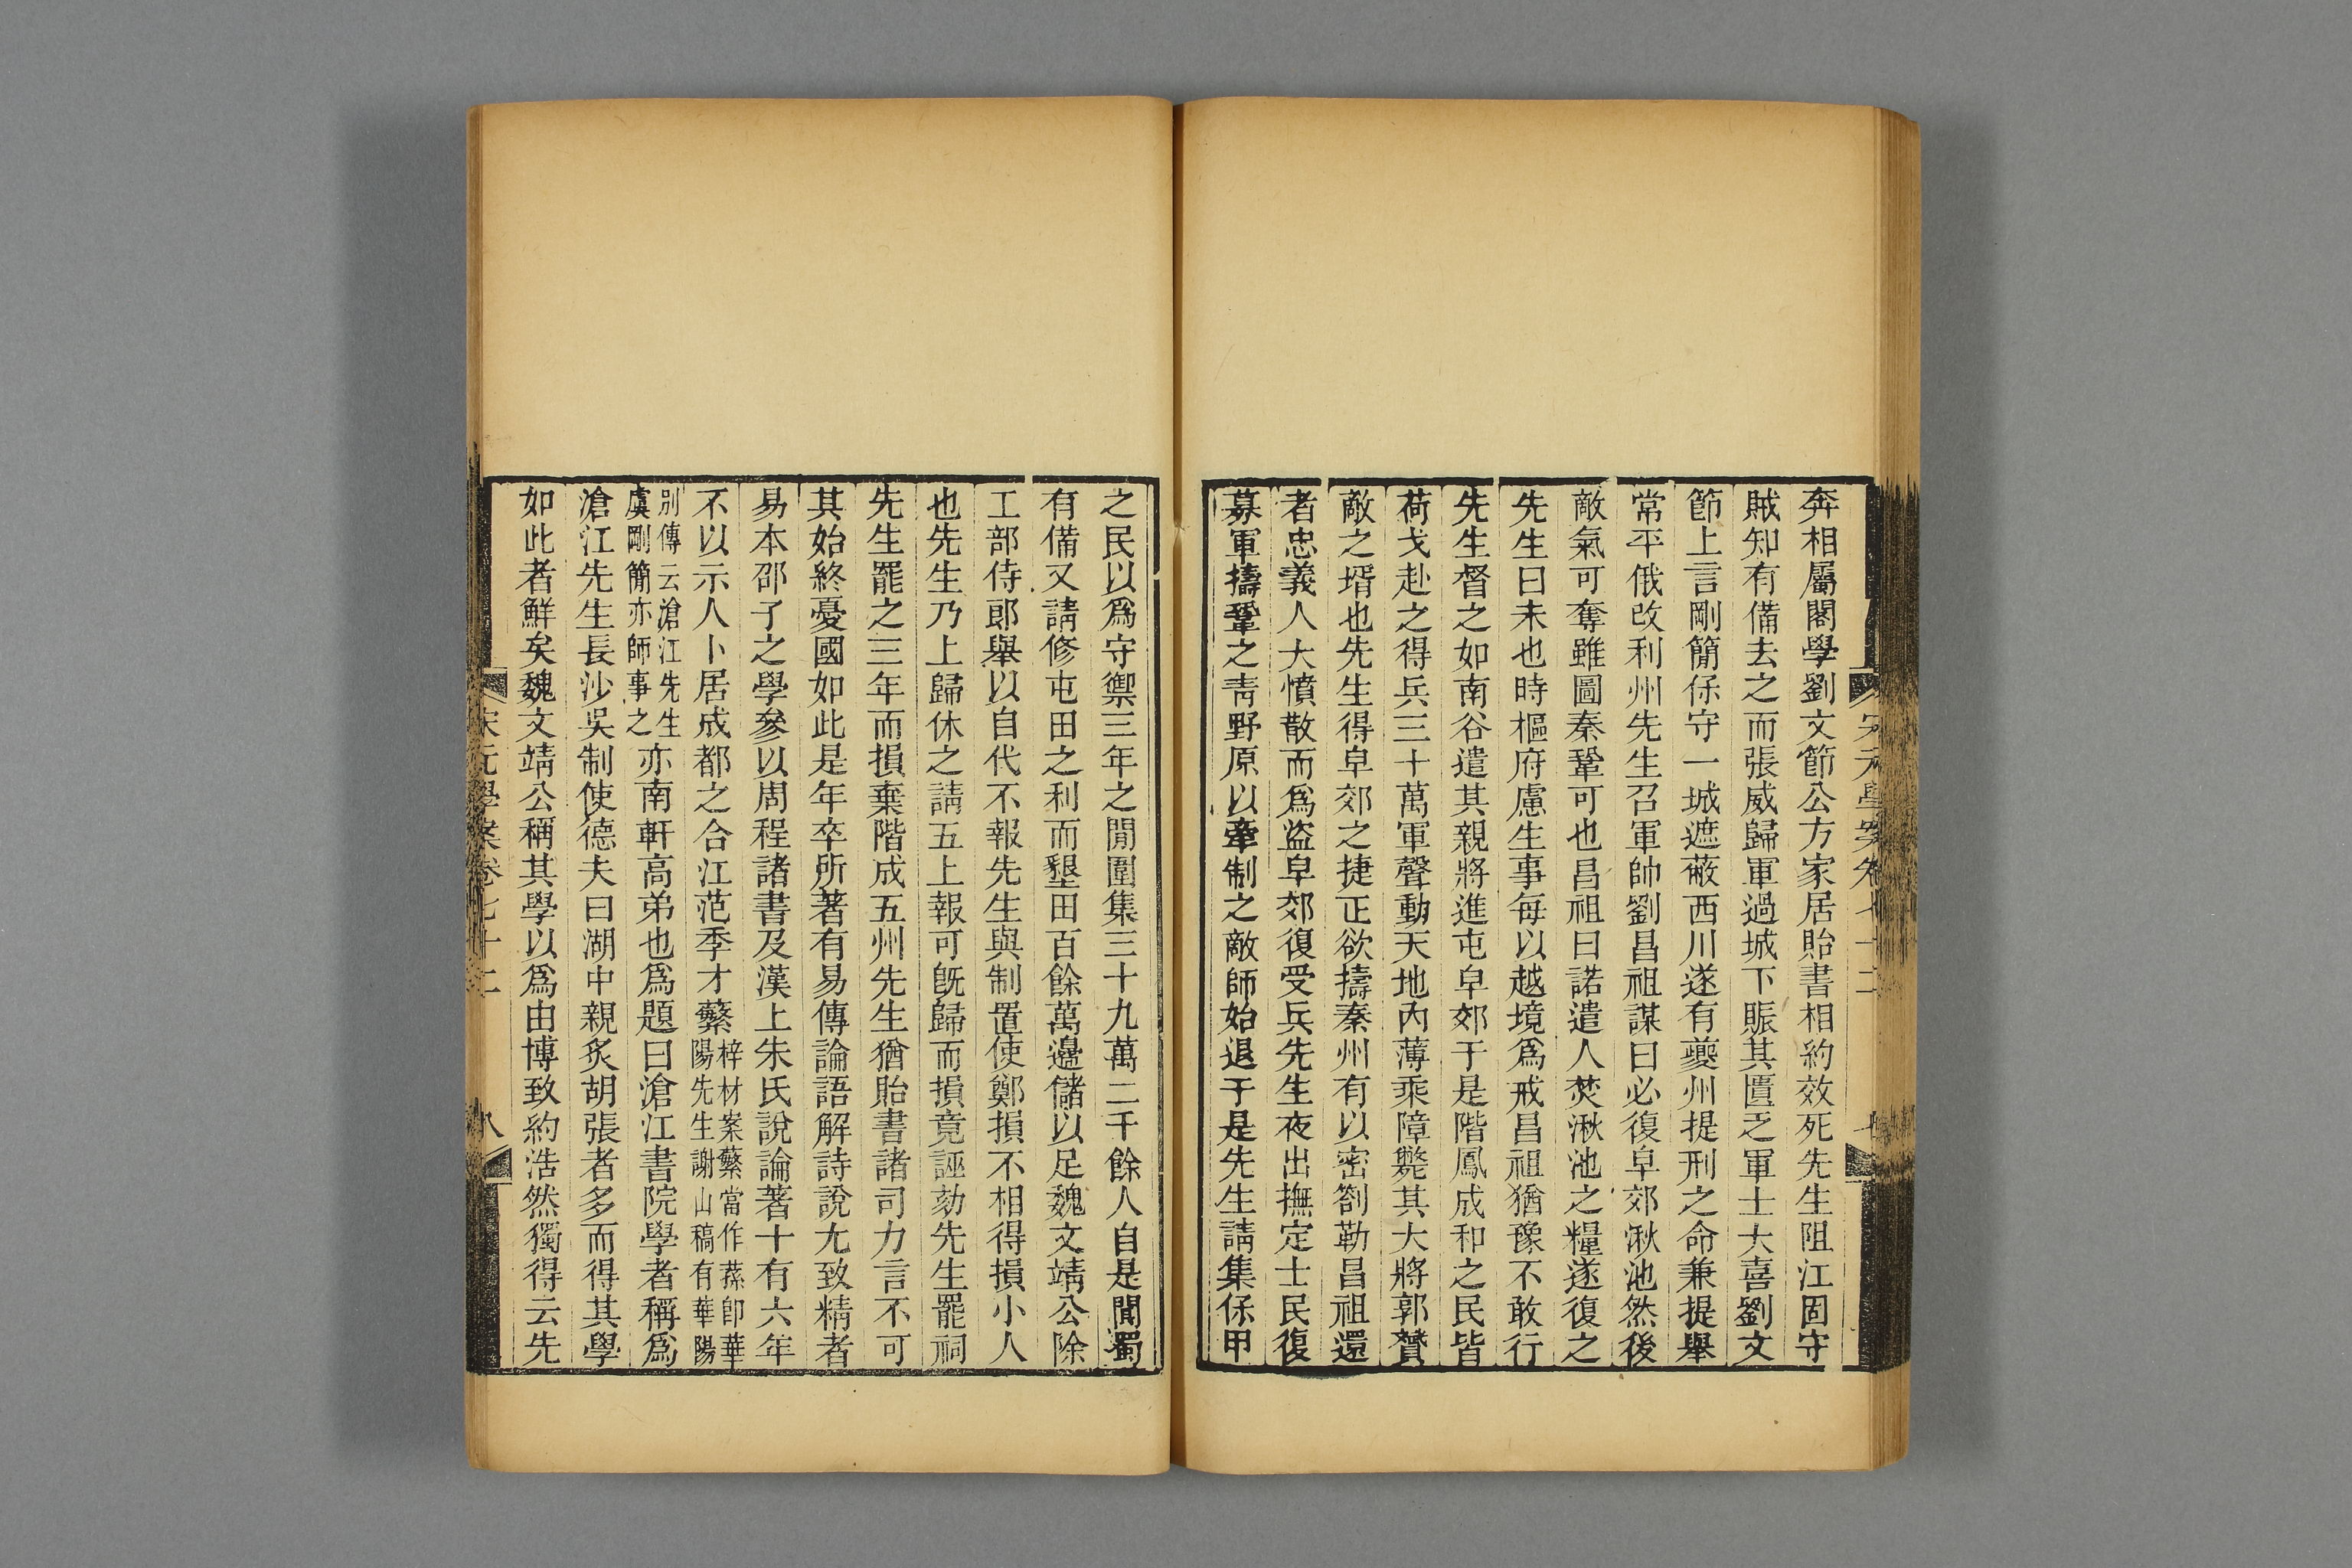 奔相屬閣學劉文節公方家居貽書相約效死先生阻江固守
賊知有備去之而張威歸軍過城下賑其匱乏軍士大喜劉文
節上言剛簡保守一城遮蔽西川遂有夔州提刑之命兼提舉
常平俄改利州先生召軍帥劉昌祖謀曰必復皁郊湫池然後
敵氣可奪雖圖秦鞏可也昌祖曰諾遣人焚湫池之糧遂復之
先生曰未也時樞府慮生事每以越境爲戒昌祖猶豫不敢行
先生督之如南谷遣其親將進屯皁郊于是階鳳成和之民皆
荷戈赴之得兵三十萬軍聲動天地內薄乘障斃其大將郭贇
敵之壻也先生得皁郊之捷正欲擣秦州有以密劄勒昌祖還
者忠義人大憤散而爲盜皁郊復受兵先生夜出撫定士民復
募軍擣鞏之靑野原以牽制之敵師始退于是先生請集保甲
之民以爲守禦三年之閒團集三十九萬二千餘人自是關蜀
有備又請修屯田之利而墾田百餘萬邊儲以足魏文靖公除
工部侍郎舉以自代不報先生與制置使鄭損不相得損小人
也先生乃上歸休之請五上報可旣歸而損竟誣劾先生罷祠
先生罷之三年而損棄階成五州先生猶貽書諸司力言不可
其始終憂國如此是年卒所著有易傳論語解詩說尢致精者
易本邵子之學參以周程諸書及漢上朱氏說論著十有六年
不以示人卜居成都之合江范季才蘩梓材案蘩當作蓀卽華
陽先生謝山稿有華陽
別傳云滄江先生
虞剛簡亦師事之亦南軒高弟也爲題曰滄江書院學者稱爲
滄江先生長沙吳制使德夫曰湖中親炙胡張者多而得其學
如此者鮮矣魏文靖公稱其學以爲由博致約浩然獨得云先
宋元學案卷七十二
八